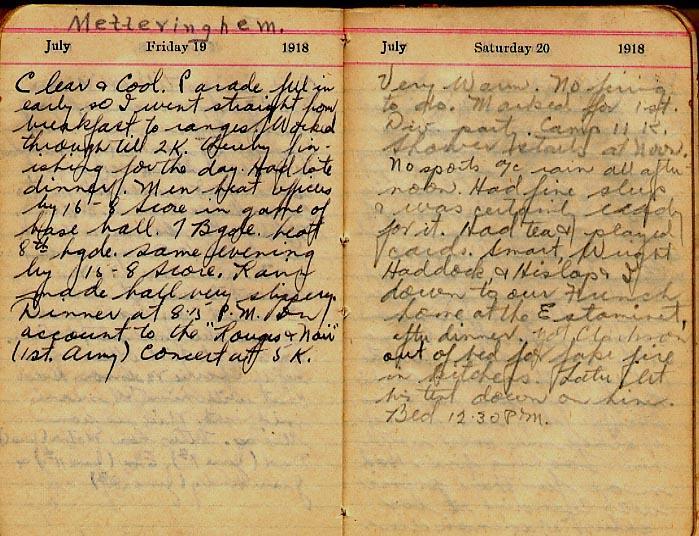 Metteringhem.
July Friday 19 1918
Clear & Cool. Parade fell in
early so I went straight from
breakfast to ranges. Worked
through till 2 K. thereby fin-
ishing for the day. Had late
dinner. Men beat officers
by 16 - 8 score in game of
base ball. 7 Bgde. beat
8th bgde. same evening
by 16 - 8 score. Rain
made ball very slippery.
Dinner at 8.15 P.M. on
account to the "Rouges & Noir"
(1st. Army) Concert at 5 K.
July Saturday 20 1918
Very Warm. No firing
to do. Marked for 1st.
Div. party. Camp 11 K.
Shower starts at Noon.
No sports o/c rain all after
noon. Had fine sleep
& was certainly ready
for it. Had tea & played
cards. Smart, Wright
Haddock & Hislop & I
down to our French
home at the Estaminet,
after dinner. Got
out of bed for fake fire
in kitchens. Later let
his tent down on him.
Bed 12.30 P.M.